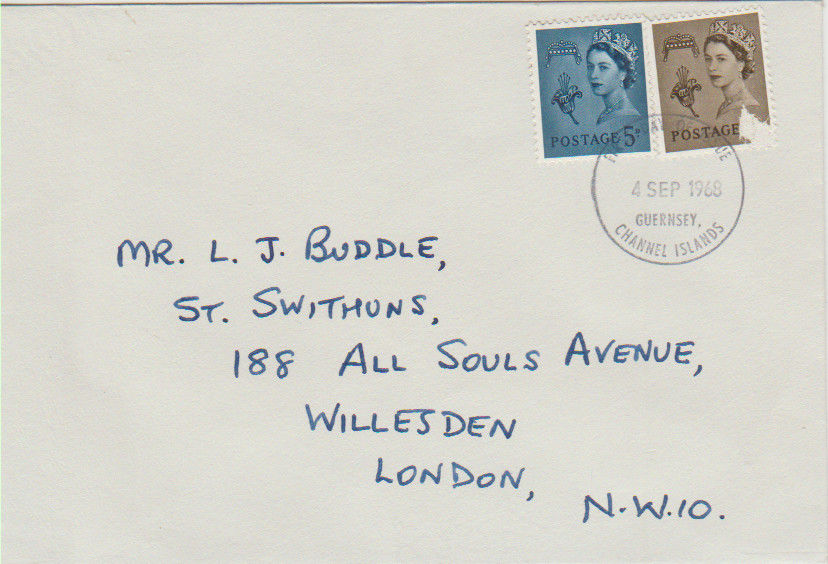 POSTAGE 5D
POSTAGE
FIRST DAY OF ISSUE
4 SEP 1968
GUERNSEY,
CHANNEL ISLANDS
MR. L. J. BUDDLE,
ST. SWITHUNS,
188 ALL SOULS AVENUE,
WILLESDEN
LONDON,
N.W.10.